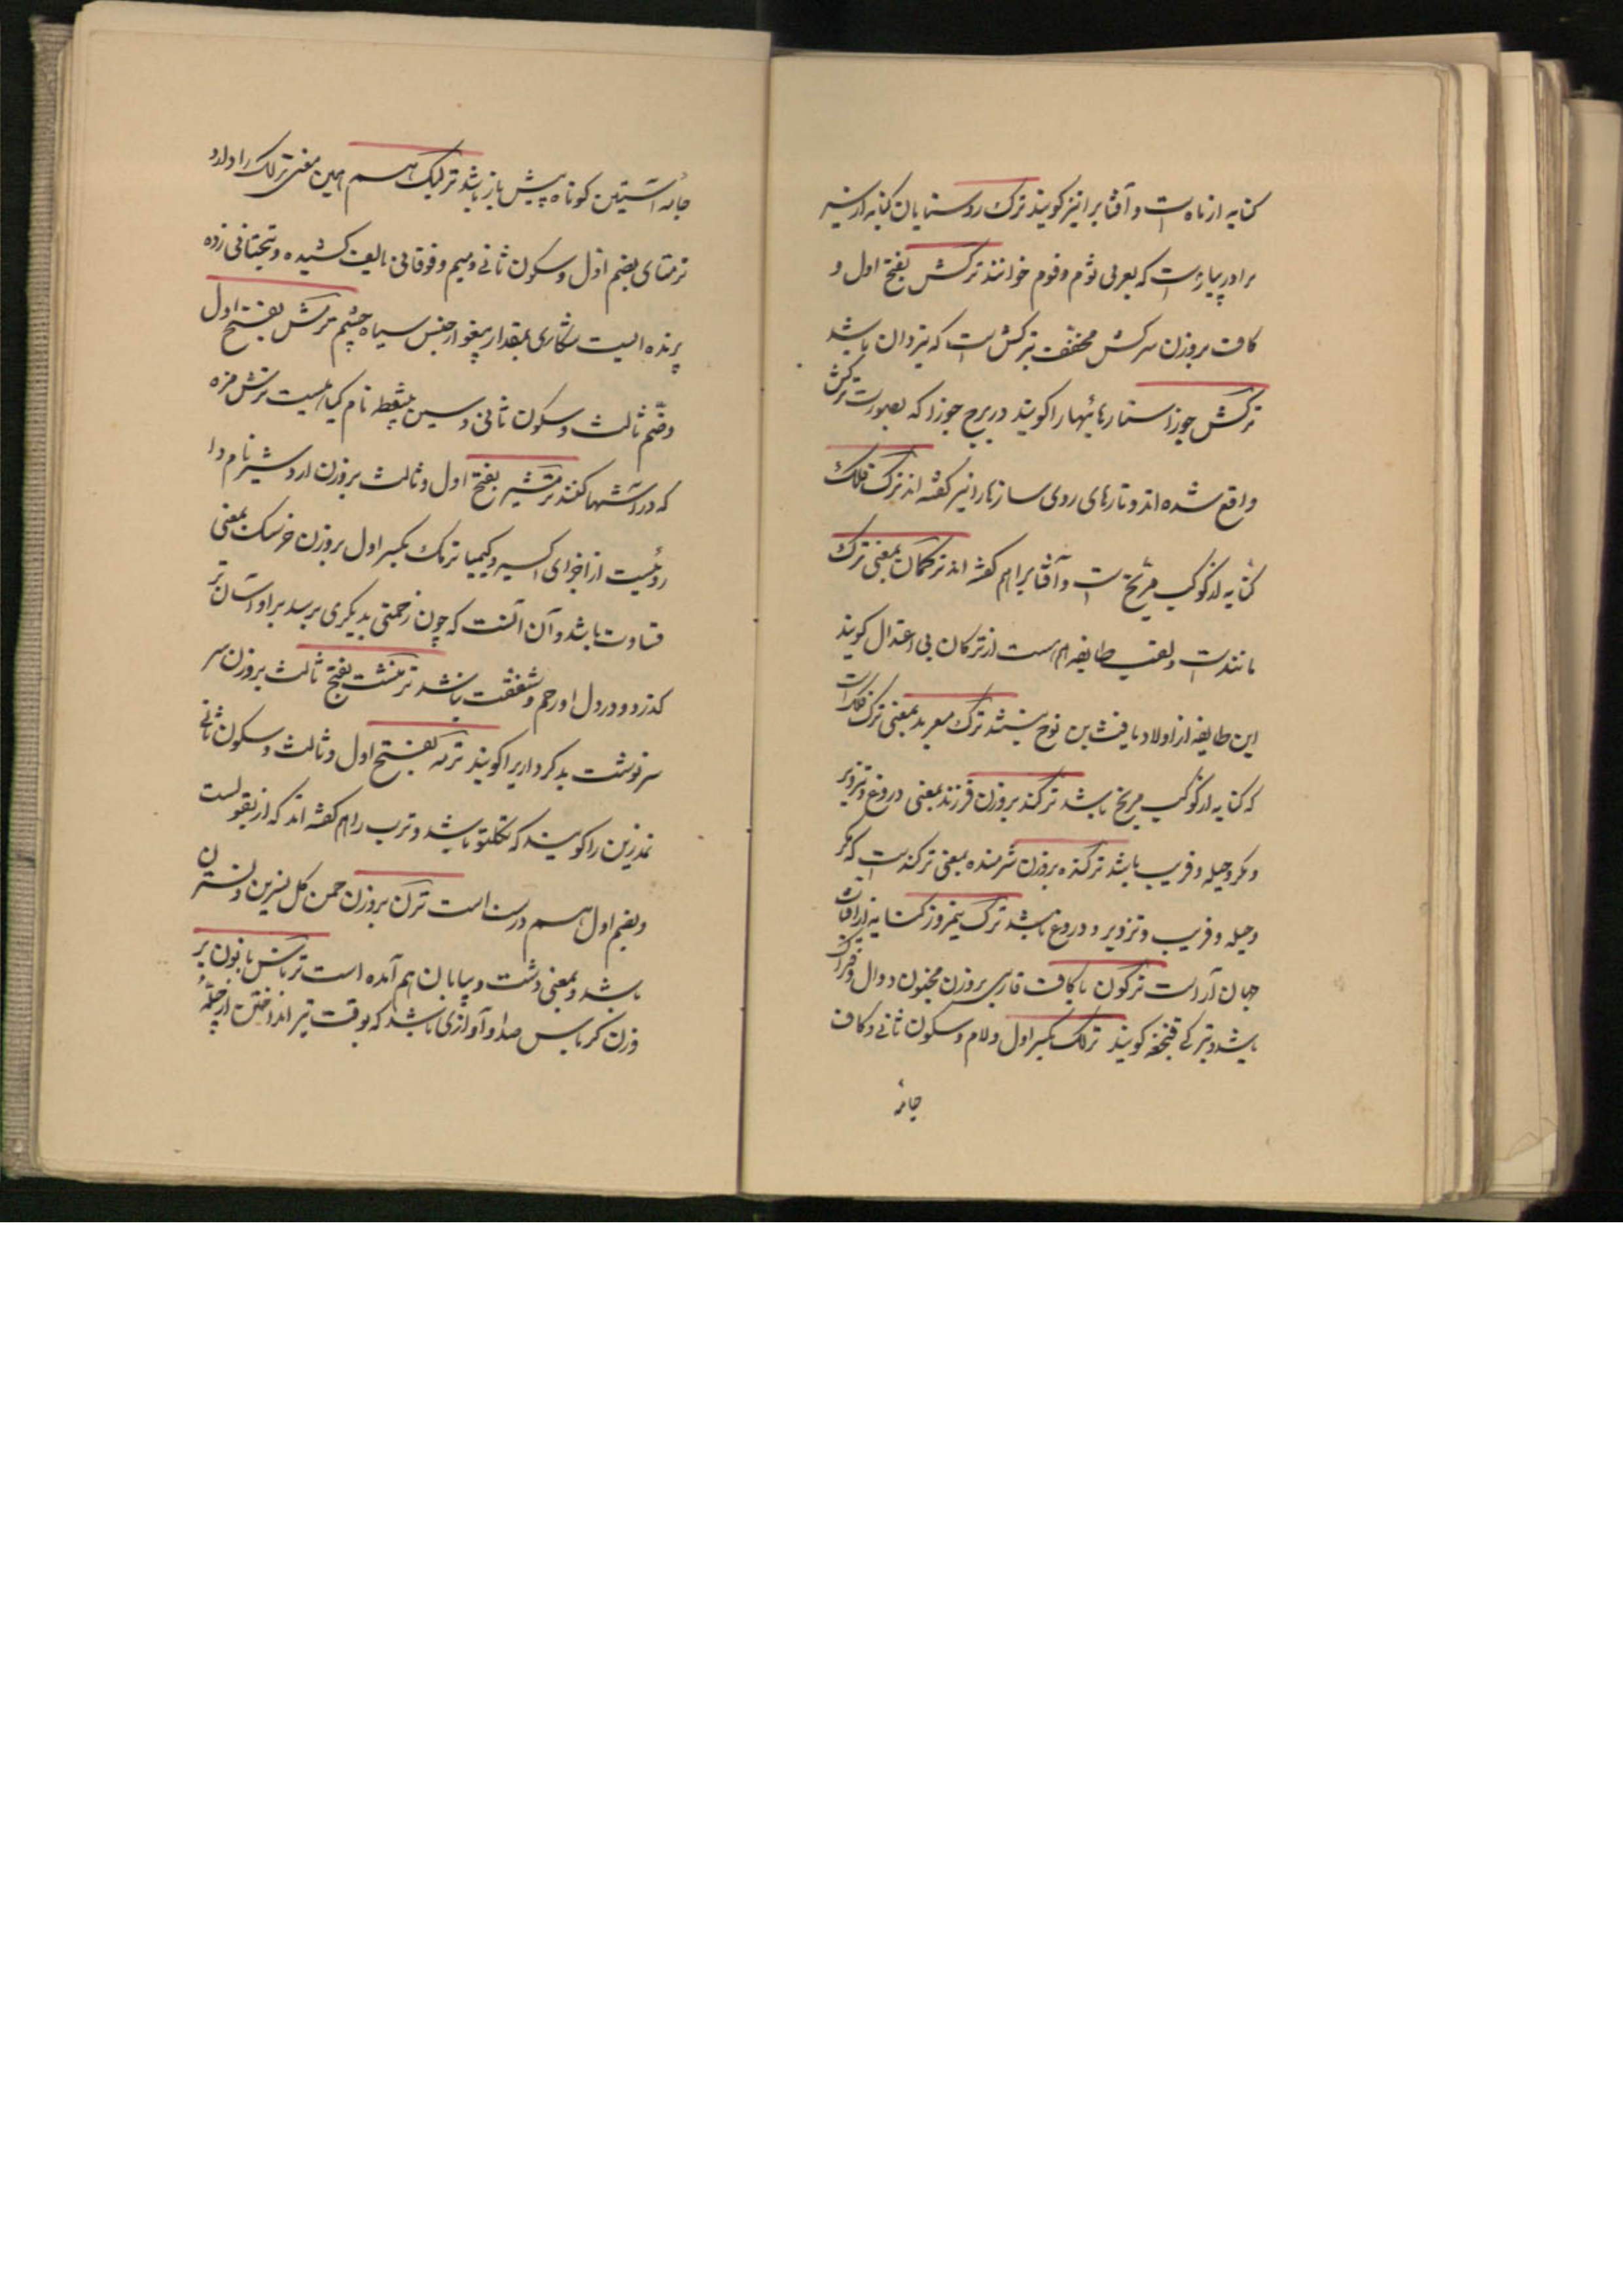 کنایه از ماه است و آفتابرا نیز کویند ترک روستایان کنایه از سیر
برادر پیاز است که بعربی ثوم و فوم خوانند ترکش بفتح اول و
کاف بروزن سرکش مخفف تیرکش است که تیردان باشد
ترکش جوزا ستارهائیها را کویند در برج جوزا که بصورت ترکش
واقع شده اند و تارهای روی سازها را نیز کفته اند ترک فلک
کنایه از کوکب مریخ است و آفتابرا هم کفته اند ترکمان بمعنی ترک
مانند است و لقب طایفه هم است از ترکان بی اعتدال کویند
این طایفه از اولاد یافث بن نوح نیستند ترک معربد بمعنی ترک فلک است
که کنایه از کوکب مریخ باشد ترکند بروزن فرزند بمعنی دروغ و تزویر
و مکر و حیله و فریب باشد ترکنده بروزن شرمنده بمعنی ترکند است که مکر
و حیله و فریب و تزویر و دروغ باشد ترک نیمروز کنایه از آفتاب
جهان آراست ترکون با کاف فارسی بروزن مجنون دوال و فتراک
باشد و بترکی قنجغه کویند ترلک بکسر اول و لام و سکون ثانی و کاف
جامهٔ
جامهٔ آستین کوتاه پیش باز باشد ترلیک هم همین معنی ترلک را دارد
ترمتای بضم اول و سکون ثانی و میم و فوقانی بالف کشیده و بتحتانی زده
پرنده ایست شکاری بمقدار پیغو از جنس سیاه چشم ترمس بفتح اول
و ضم ثالث و سکون ثانی و سین بینقطه نام کیاهیست ترش مزه
که در آشها کنند ترمشیر بفتح اول و ثالث بروزن اردشیر نام دا
روئیست از اجزای اکسیر و کیمیا ترمک بکسر اول بروزن خرسک بمعنی
قساوت باشد و آن آنست که چون زحمتی بدیکری برسد بر او آسان تر
کذرد و در دل او رحم و شفقت نباشد ترمنشت بفتح ثالث بروزن سر
سرنوشت بد کرداریرا کویند ترمه بفتح اول و ثالث و سکون ثانی
نمد زین را کویند که تکلتو باشد و ترب را هم کفته اند که از بقولست
و بضم اول هم درست است ترن بروزن چمن کل نسرین و نسترن
باشد و بمعنی دشت و بیابان هم آمده است ترناس با نون بر
وزن کرباس صدا و آوازی باشد که بوقت تیر انداختن از چلّهٔ